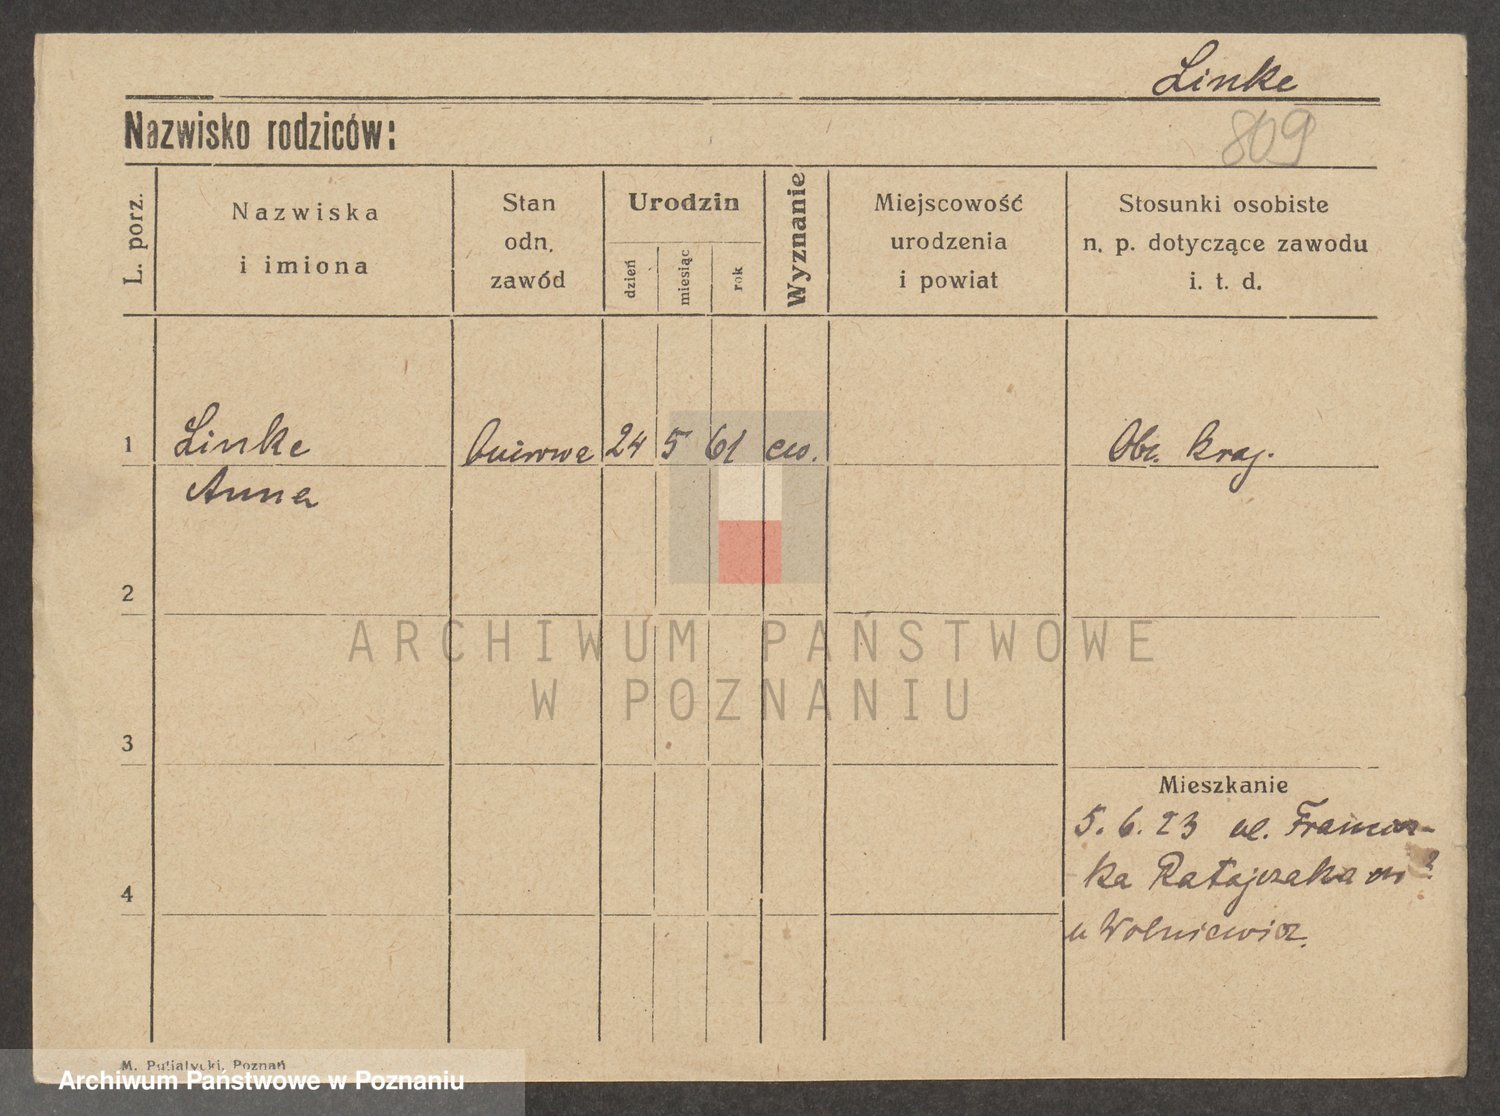 Linke
Nazwisko rodziców:
809
L. porz.
Nazwiska
i imiona
Stan
odn.
zawód
Urodzin
dzień
miesiąc
rok
Wyznanie
Miejscowość
urodzenia
i powiat
Stosunki osobiste
n. p. dotyczące zawodu
i. t. d.
1
Linke
24
5
61
ew.
Obc. kraj.
Anna
2
ARCHIWUM PAŃSTWOWE
W POZNANIU
3
Mieszkanie
5. 6. 23 ul. Francisz-
ka Ratajczaka
4
u Wolniewicz.
M. Putiatycki, Poznań
Archiwum Państwowe w Poznaniu